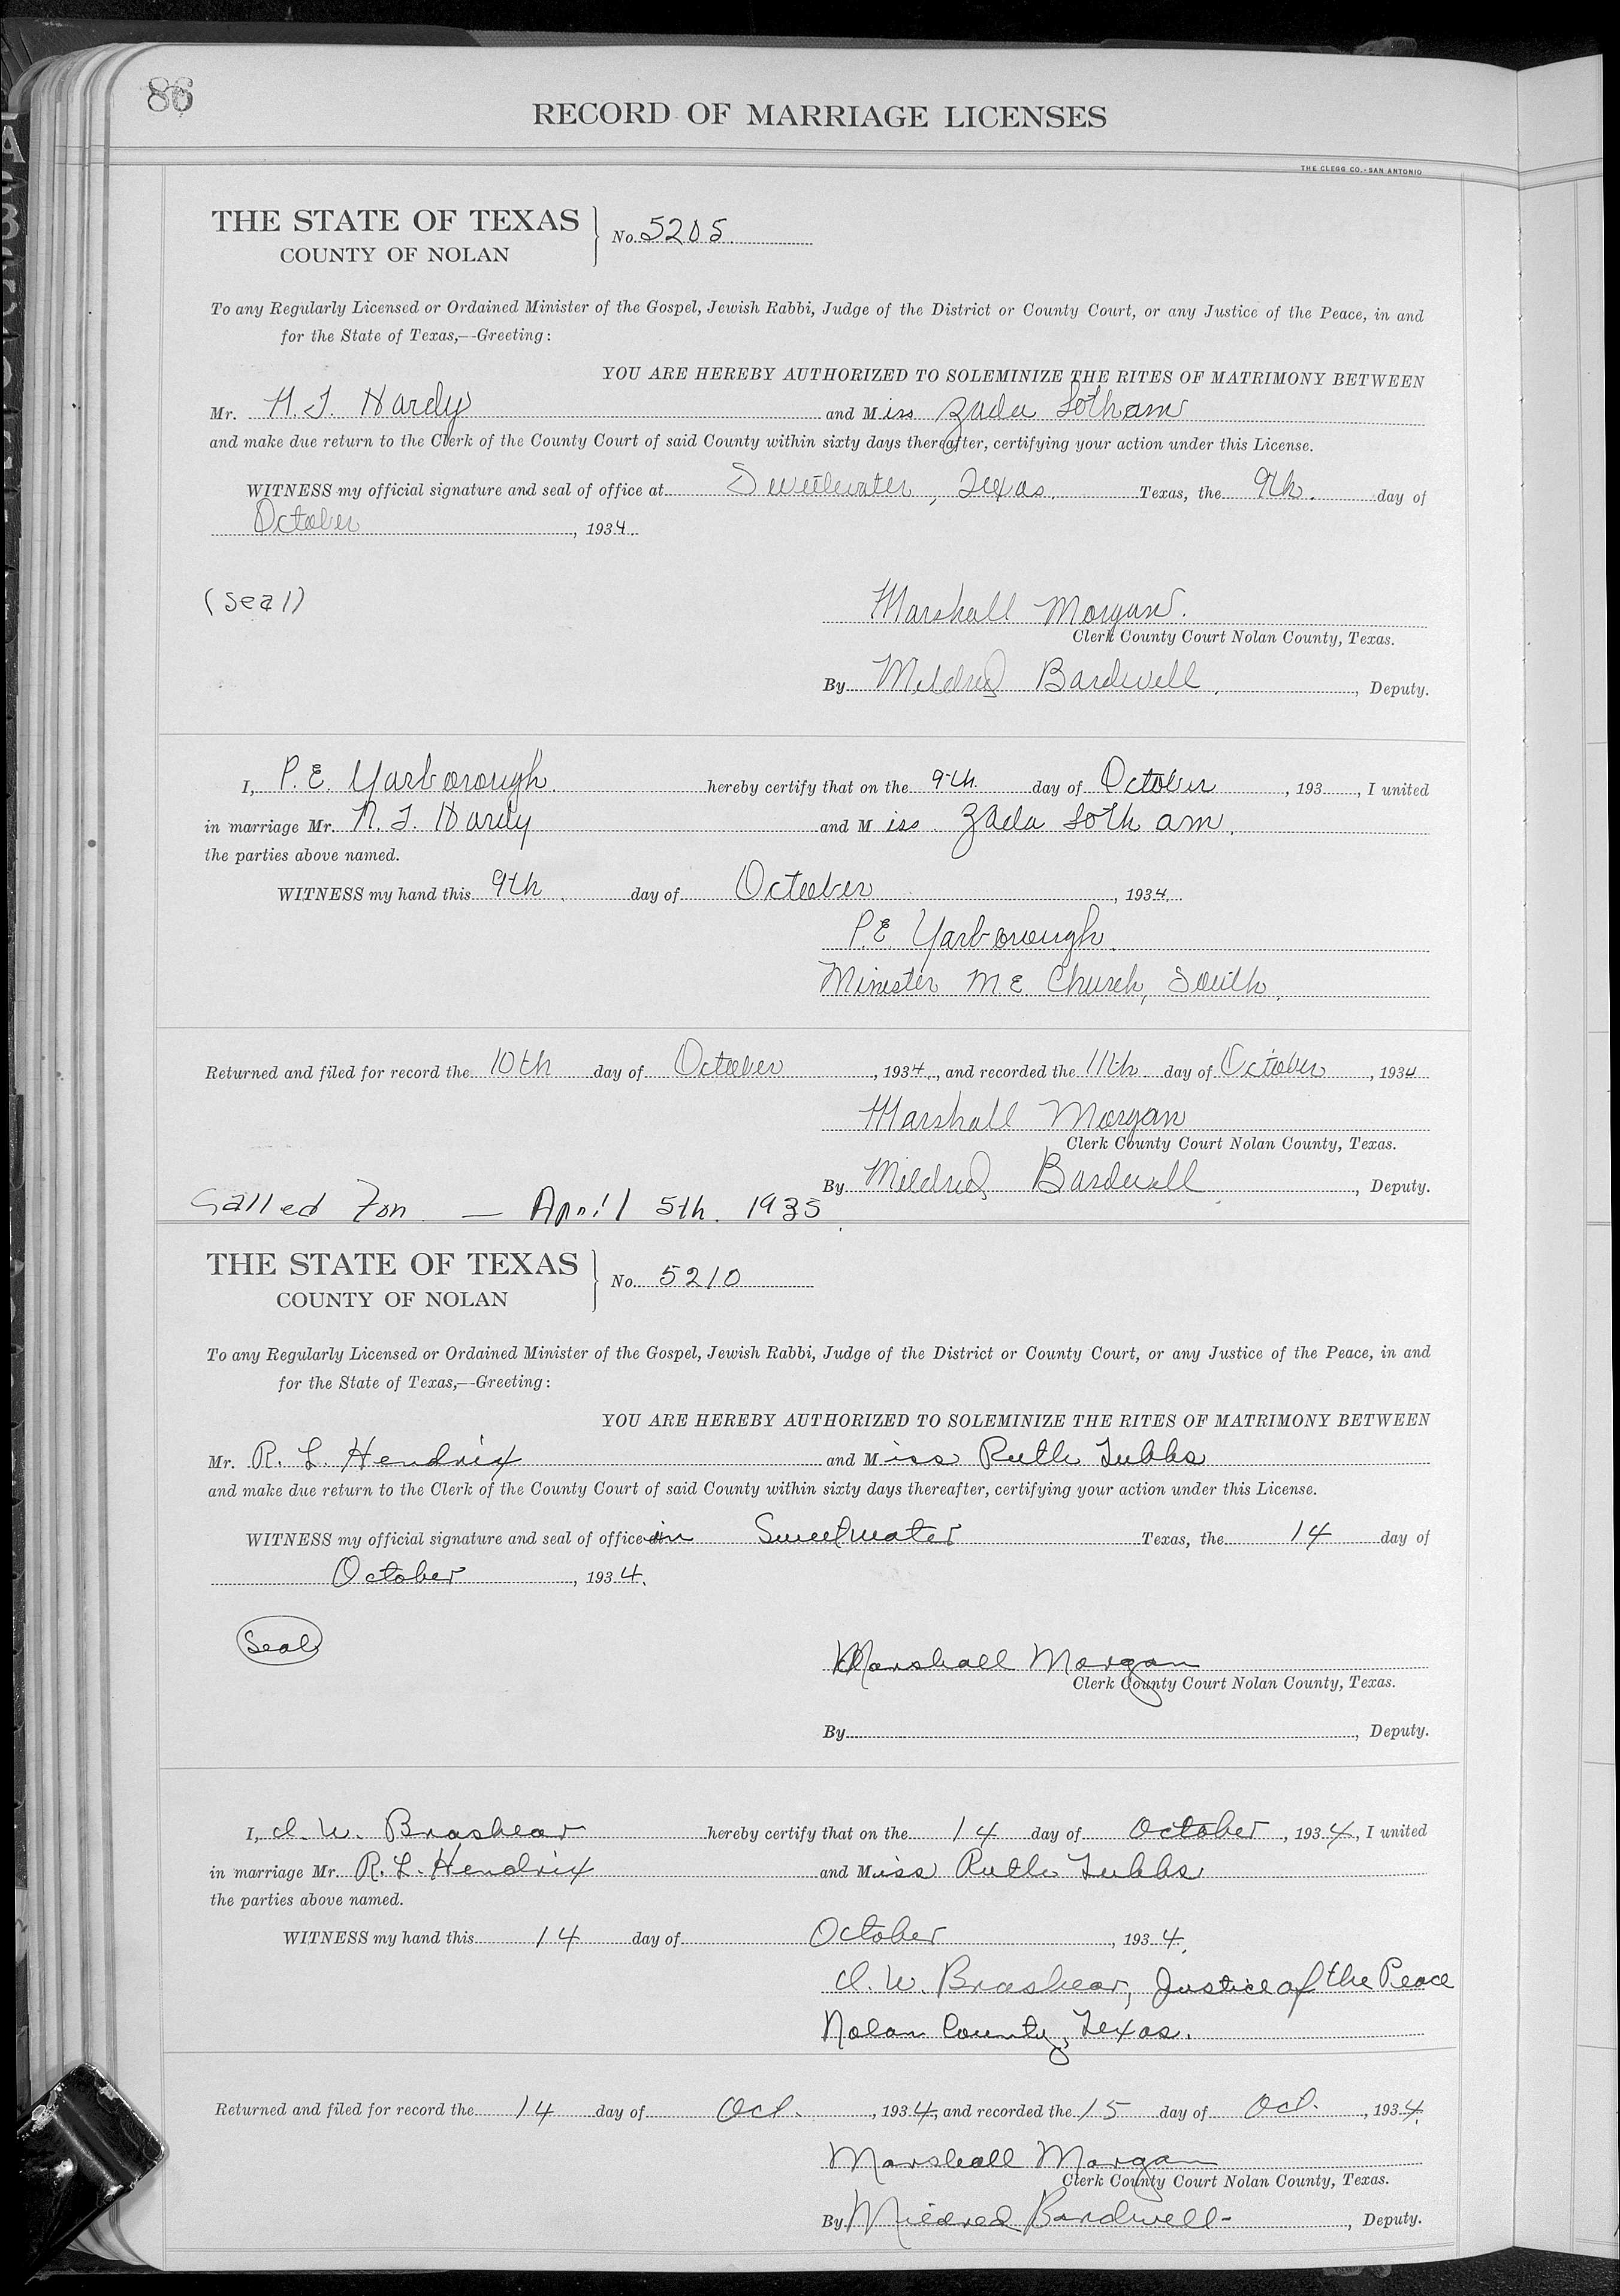 86
RECORD OF MARRIAGE LICENSES
THE CLEGG CO.-SAN ANTONIO
THE STATE OF TEXAS
COUNTY OF NOLAN
No. 5205
To any Regularly Licensed or Ordained Minister of the Gospel, Jewish Rabbi, Judge of the District or County Court, or any Justice of the Peace, in and
for the State of Texas,—Greeting:
YOU ARE HEREBY AUTHORIZED TO SOLEMINIZE THE RITES OF MATRIMONY BETWEEN
Mr. Hardy and Miss Zada Lotham
and make due return to the Clerk of the County Court of said County within sixty days thereafter, certifying your action under this License.
WITNESS my official signature and seal of office at Sweetwater, Texas. Texas, the 9th. day of
October, 1934.
(Seal)
Marshall Morgan.
Clerk County Court Nolan County, Texas.
By Mildred Bardwell, Deputy.
I, P. E. Yarborough. hereby certify that on the 9th. day of October, 193, I united
in marriage Mr. Hardy and Miss Zada Lotham.
the parties above named.
WITNESS my hand this 9th. day of October, 1934.
P. E. Yarborough.
Minister M. E. Church, South.
Returned and filed for record the 10th day of October, 1934, and recorded the 11th day of October, 1934
Marshall Morgan
Clerk County Court Nolan County, Texas.
By Mildred Bardwell, Deputy.
Called For — April 5th. 1935
THE STATE OF TEXAS
COUNTY OF NOLAN
No. 5210
To any Regularly Licensed or Ordained Minister of the Gospel, Jewish Rabbi, Judge of the District or County Court, or any Justice of the Peace, in and
for the State of Texas,—Greeting:
YOU ARE HEREBY AUTHORIZED TO SOLEMINIZE THE RITES OF MATRIMONY BETWEEN
Mr. R. L. Hendrix and Miss Ruth Tubbs
and make due return to the Clerk of the County Court of said County within sixty days thereafter, certifying your action under this License.
WITNESS my official signature and seal of office in Sweetwater Texas, the 14 day of
October, 1934.
Seal
Marshall Morgan
Clerk County Court Nolan County, Texas.
By, Deputy.
I, W. Brashear hereby certify that on the 14 day of October, 1934, I united
in marriage Mr. R. L. Hendrix and Miss Ruth Tubbs
the parties above named.
WITNESS my hand this 14 day of October, 1934.
W. Brashear, Justice of the Peace
Nolan County, Texas.
Returned and filed for record the 14 day of Oct., 1934, and recorded the 15 day of Oct., 1934.
Marshall Morgan
Clerk County Court Nolan County, Texas.
By Mildred Bardwell, Deputy.